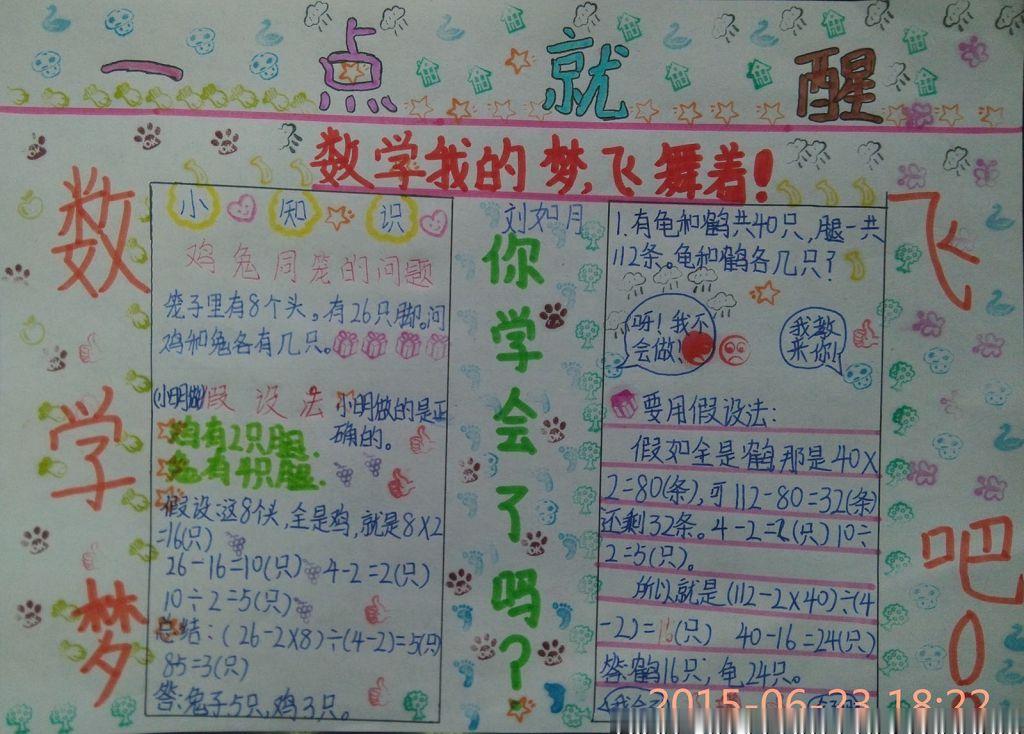 一点就醒
数学我的梦,飞舞着!
数学梦
飞吧
小知识
鸡兔同笼的问题
笼子里有8个头。有26只脚。问
鸡和兔各有几只。
(小明做)假设法
小明做的是正
确的。
鸡有2只腿.
兔有4只腿.
假设:这8个头,全是鸡,就是8×2
=16(只)
26-16=10(只) 4-2=2(只)
10÷2=5(只)
总结:(26-2×8)÷(4-2)=5(只)
85=3(只)
答:兔子5只,鸡3只。
刘如月
你学会了吗?
1.有龟和鹤共40只,腿一共
112条。龟和鹤各几只?
呀!我不
会做!
我教
来你!
要用假设法:
假如全是鹤,那是40×
2=80(条),可112-80=32(条)
还剩32条。4-2=2(只)10÷
2=5(只)。
所以就是(112-2×40)÷(4
-2)=16(只) 40-16=24(只)
答:鹤16只;龟24只。
2015-06-23 18:22